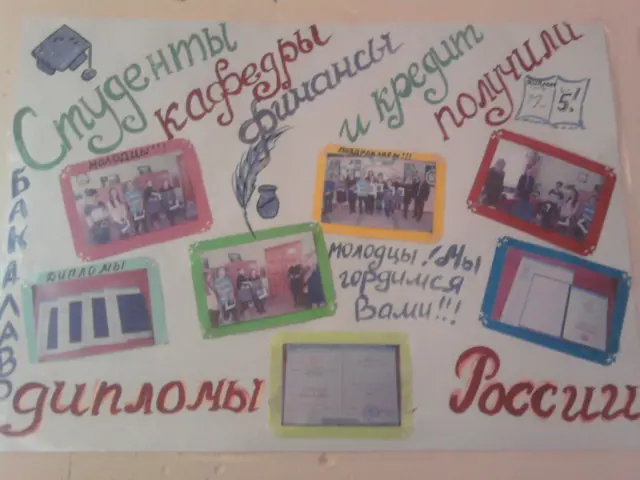 Студенты
кафедры
финансы
и кредит
получили
5!
МОЛОДЦЫ!!!
ПОЗДРАВЛЯЕМ!!!
БАКАЛАВР
ДИПЛОМЫ
МОЛОДЦЫ! Мы
гордимся
Вами!!!
дипломы
России